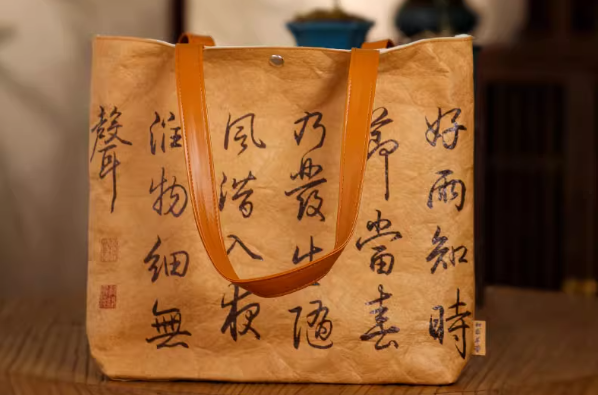 好雨知時
節當春
乃發生隨
風潜入夜
潤物細無
聲